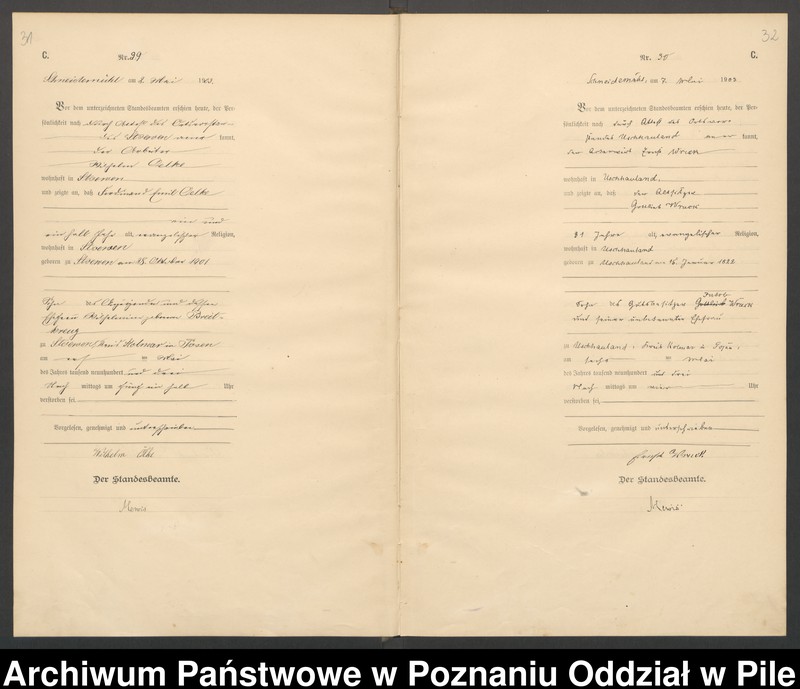 31
C.
Nr. 29
Schneidemühl am 8. Mai 1903.
Vor dem unterzeichneten Standesbeamten erschien heute, der Per-
sönlichkeit nach durch Attest des
des Stoewen kannt,
der Arbeiter
Wilhelm Oelke
wohnhaft in Stoewen
und zeigte an, daß Ferdinand Emil Oelke
ein und
ein halb Jahr alt, evangelischer Religion,
wohnhaft in Stoewen
geboren zu Stoewen am 18. Oktober 1901
Sohn des Anzeigenden und dessen
Ehefrau Wilhelmine geborene Breit-
kreuz
zu Stoewen Kreis Kolmar in Posen
am ten Mai
des Jahres tausend neunhundert und drei
Nach mittags um fünf ein halb Uhr
verstorben sei.
Vorgelesen, genehmigt und unterschrieben
Wilhelm Ölke
Der Standesbeamte.
32
C.
Nr. 30
Schneidemühl, am 7. Mai 1903.
Vor dem unterzeichneten Standesbeamten erschien heute, der Per-
sönlichkeit nach durch Attest des
Uschhauland kannt,
der Wruck
wohnhaft in Uschhauland.
und zeigte an, daß der Altsitzer
Gottlieb Wruck
81 Jahre alt, evangelischer Religion,
wohnhaft in Uschhauland
geboren zu Uschhauland am 16. Januar 1822
Sohn des Gutsbesitzers Jakob Wruck
und seiner unbekannten Ehefrau
zu Uschhauland, Kreis Kolmar i. Posen.
am sechs ten Mai
des Jahres tausend neunhundert und drei
Nach mittags um Uhr
verstorben sei.
Vorgelesen, genehmigt und unterschrieben
Wruck
Der Standesbeamte.
Archiwum Państwowe w Poznaniu Oddział w Pile